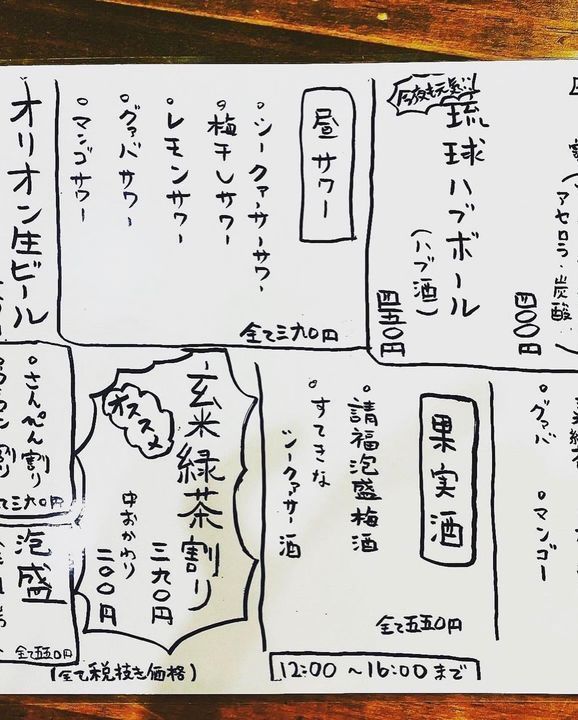 割
(アセロラ・炭酸
四〇〇円
今夜も元気!!
琉球ハブボール
(ハブ酒)
四五〇円
昼サワー
シークァーサーサワー
梅干しサワー
レモンサワー
グァバサワー
マンゴサワー
全て三九〇円
オリオン生ビール
グァバ
マンゴー
果実酒
請福泡盛梅酒
すてきな
シークァサー酒
全て五五〇円
玄米緑茶割り
オススメ
三九〇円
中おかわり
二〇〇円
さんぴん割り
割り
全て三九〇円
泡盛
全て五五〇円
(全て税抜き価格)
12:00〜16:00まで